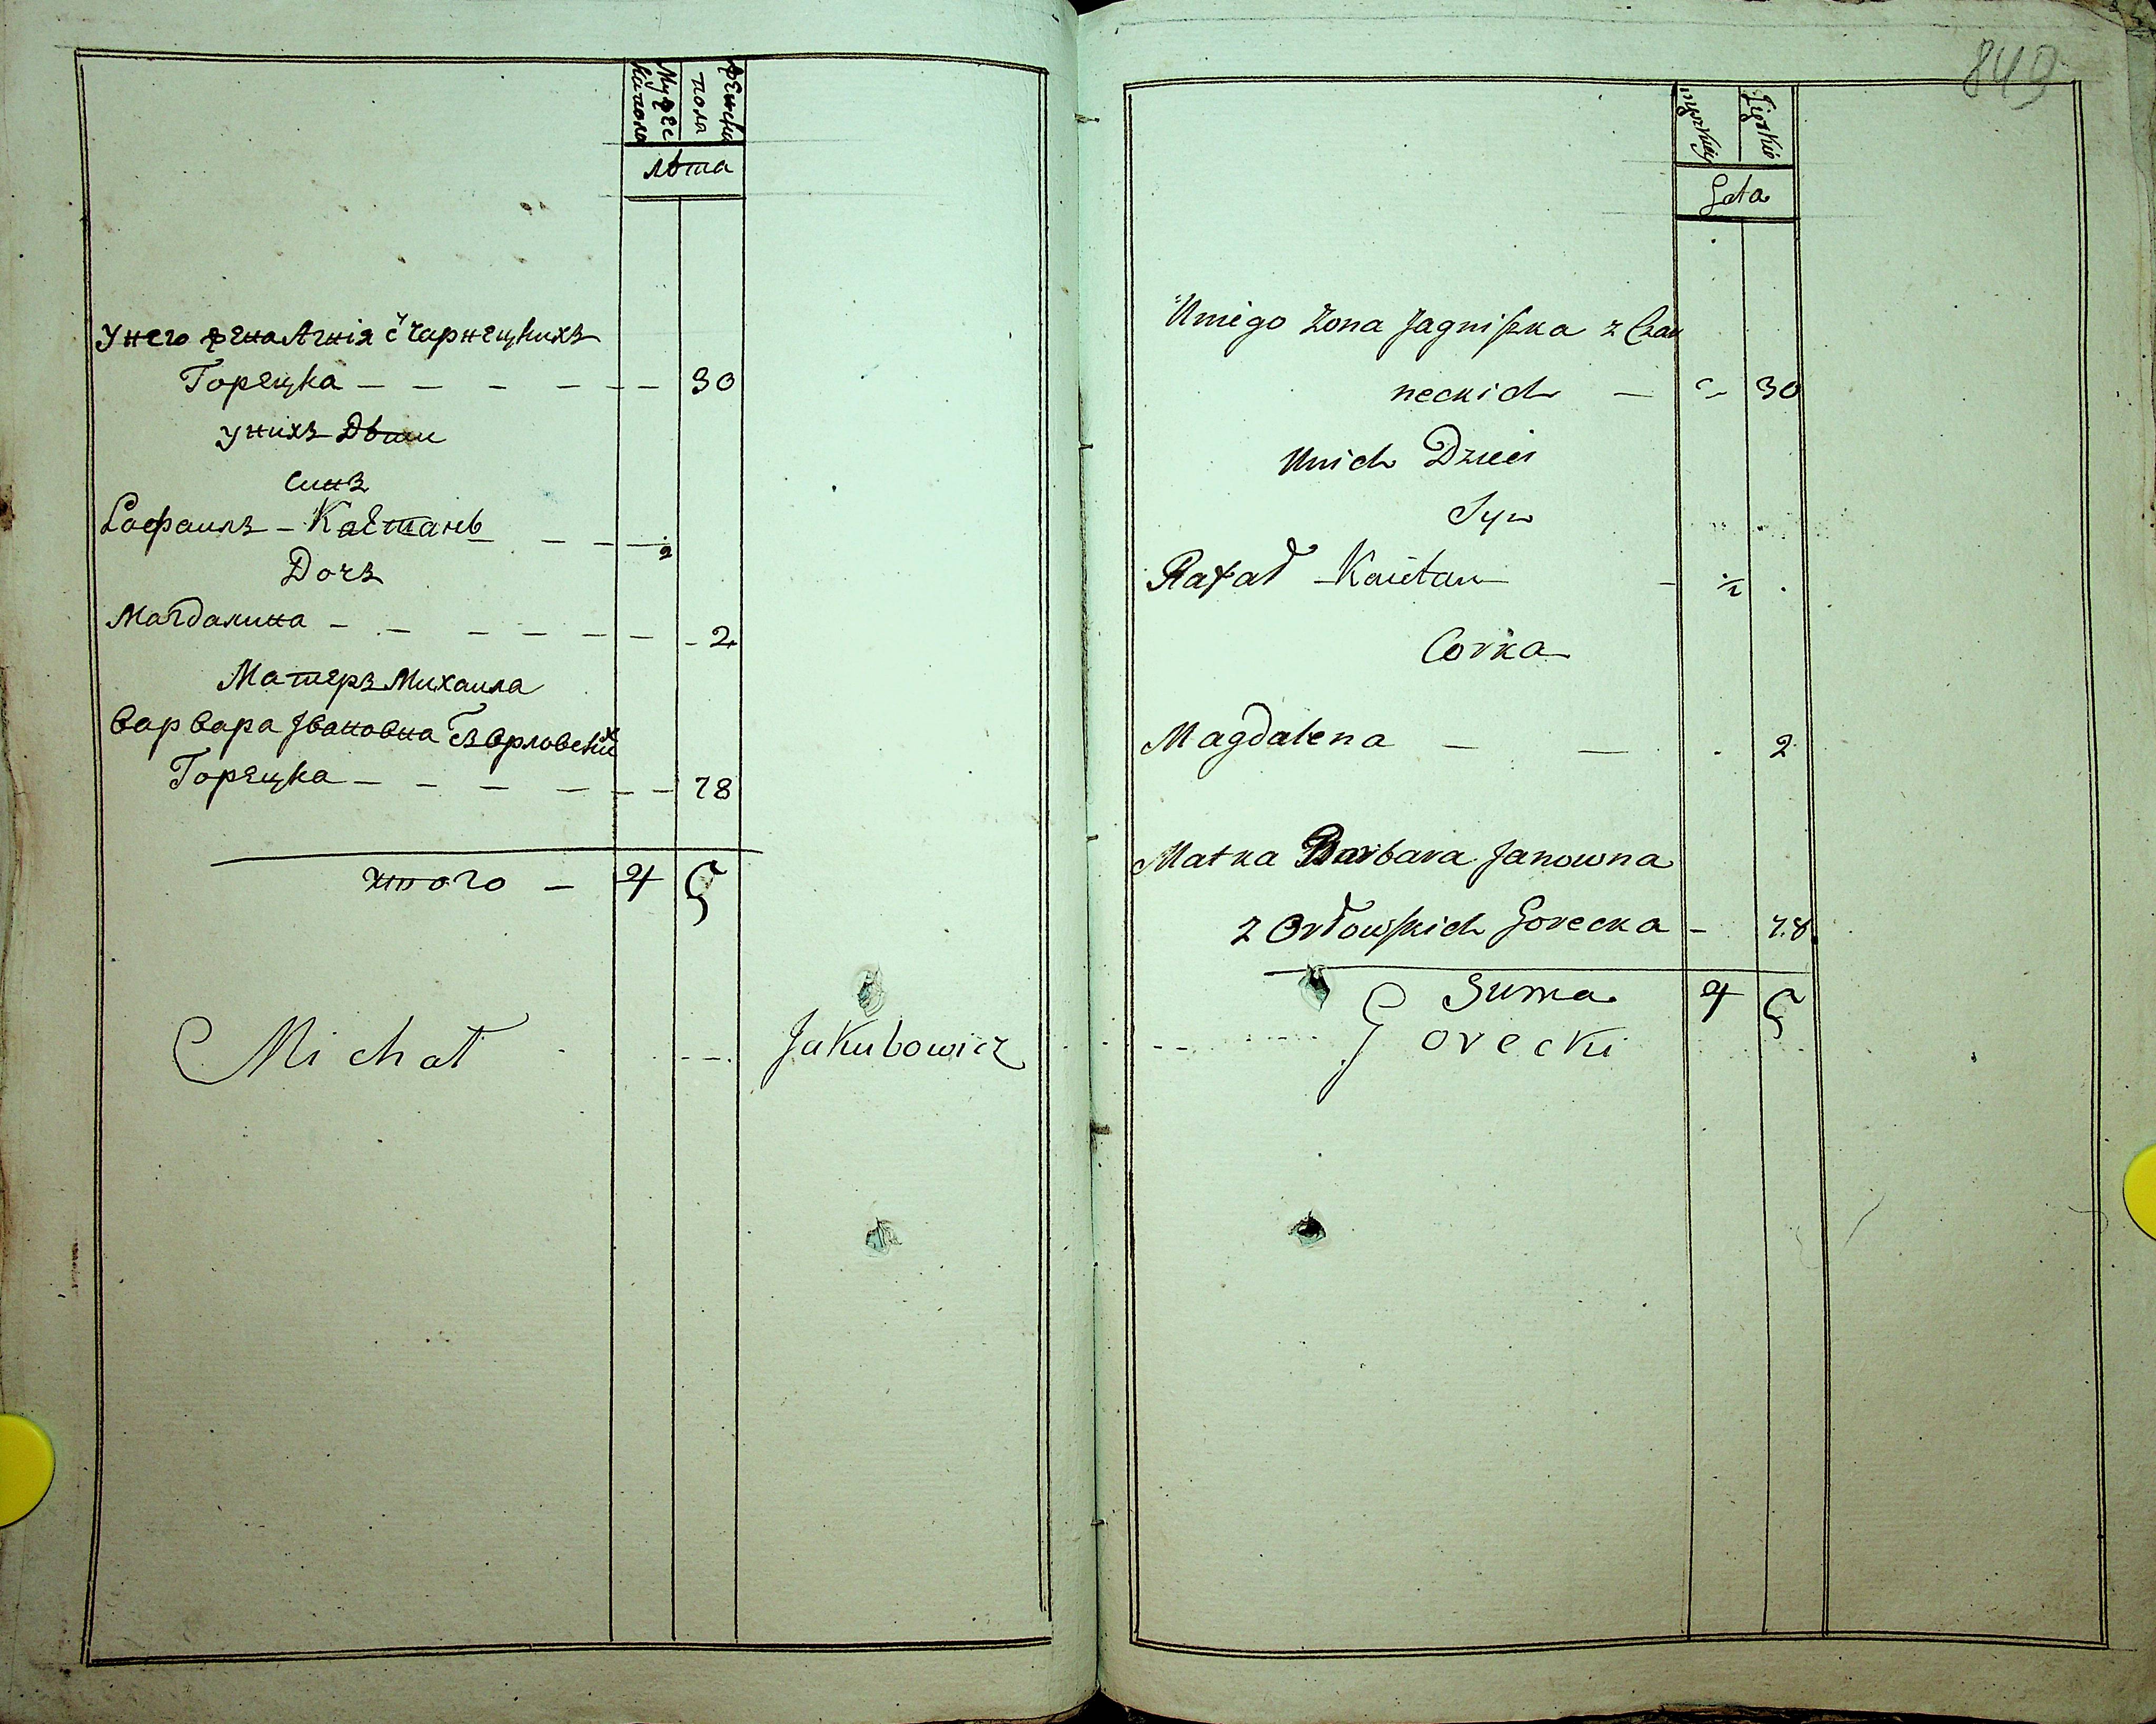 Мужес
кá пола
женска
пола
лѣта
У него жена Агнія с Чарнецкихъ
Горецка — — — — — — 30
У нихъ Дѣти
Синъ
Рафаилъ - Каетанъ — — — 2
Дочъ
Магдалина — — — — — — 2
Матеръ Михаила
Варвара Ивановна зъ Орловских
Горецка — — — — — — 78
итого — 4 5
Michał Jakubowicz
849
męzkiej
Żęskie
Lata
U niego Zona Jagniszka z Czar
neckich — 30
U nich Dzieci
Syn
Rafał Kaietan — ½
Corka
Magdalena — — 2
Matka Barbara Janowna
z Orłowskich Gorecka — 78
Suma 4 5
Gorecki